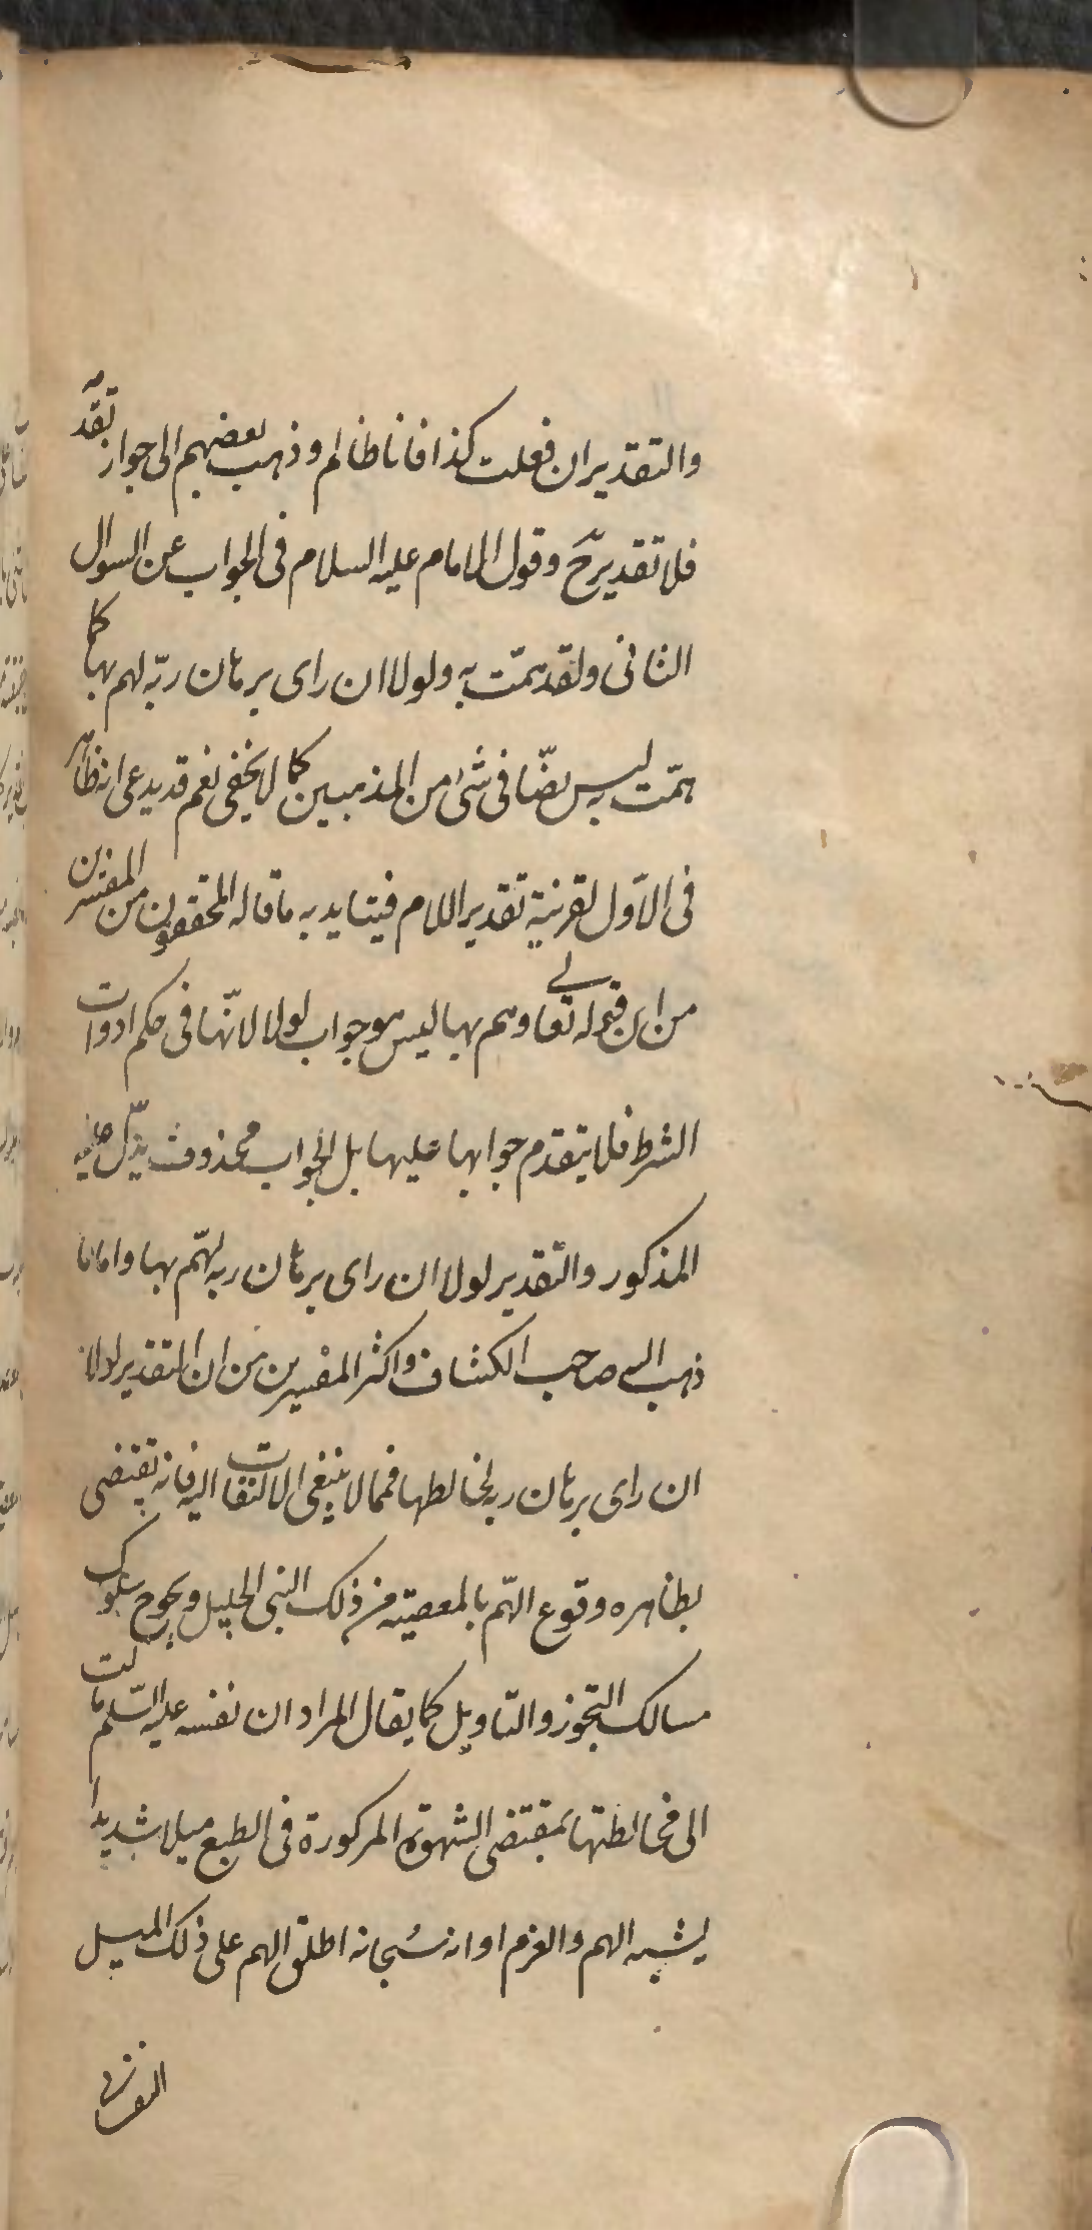 والتقدير ان فعلت كذا فانا ظالم وذهب بعضهم الى جواز تقدمه
فلا تقدير ح وقول الامام عليه السلام فى الجواب عن السوال
الثانى ولقد همّت به ولولا ان راى برهان ربّه لهم بها كما
همّت به ليس نصّا فى شئ من المذهبين كما لا يخفى نعم قد يدعى انه ظاهر
فى الاوّل لقرينة تقدير اللام فيتايد به ما قاله المحققون من المفسرين
من ان قوله تعالى وهم بها ليس هو جواب لولا لانّها فى حكم ادوات
الشرط فلا يتقدم جوابها عليها بل الجواب محذوف يدلّ عليه
المذكور والتقدير لولا ان راى برهان ربه لهمّ بها واما ما
ذهب اليه صاحب الكشاف واكثر المفسرين من ان التقدير لولا
ان راى برهان ربه لخالطها فمما لا ينبغى الالتفات اليه فانه يقتضى
بظاهره وقوع الهمّ بالمعصية من ذلك النبى الجليل ويحوج سلوك
مسالك التجوز والتاويل كما يقال المراد ان نفسه عليه السّلم مالت
الى مخالطتها بمقتضى الشهوة المركوزة فى الطبع ميلا شديدا
يشبه الهم والعزم او انه سُبحانه اطلق الهم على ذلك الميل